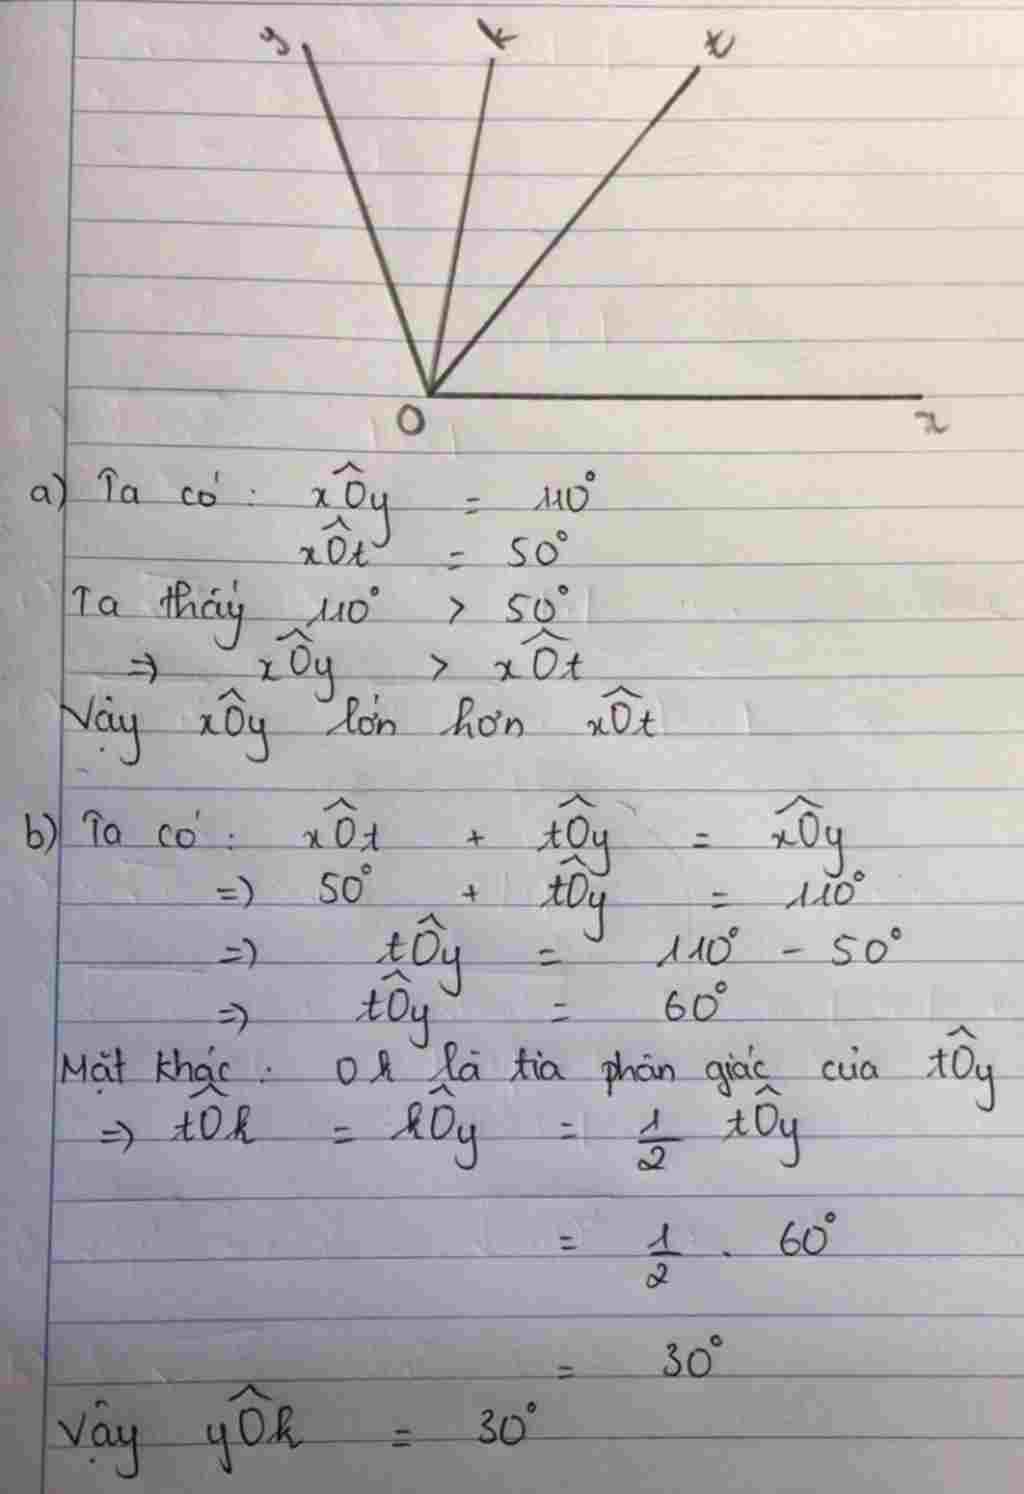 y k t
O x
a) Ta có : xÔy = 110°
xÔt = 50°
Ta tháy 110° > 50°
=> xÔy > xÔt
Vậy xÔy lớn hơn xÔt
b) Ta có : xÔt + tÔy = xÔy
=> 50° + tÔy = 110°
=> tÔy = 110° - 50°
=> tÔy = 60°
Mặt khác : Ok là tia phân giác của tÔy
=> tÔk = kÔy = 1/2 tÔy
= 1/2 . 60°
= 30°
Vậy yÔk = 30°